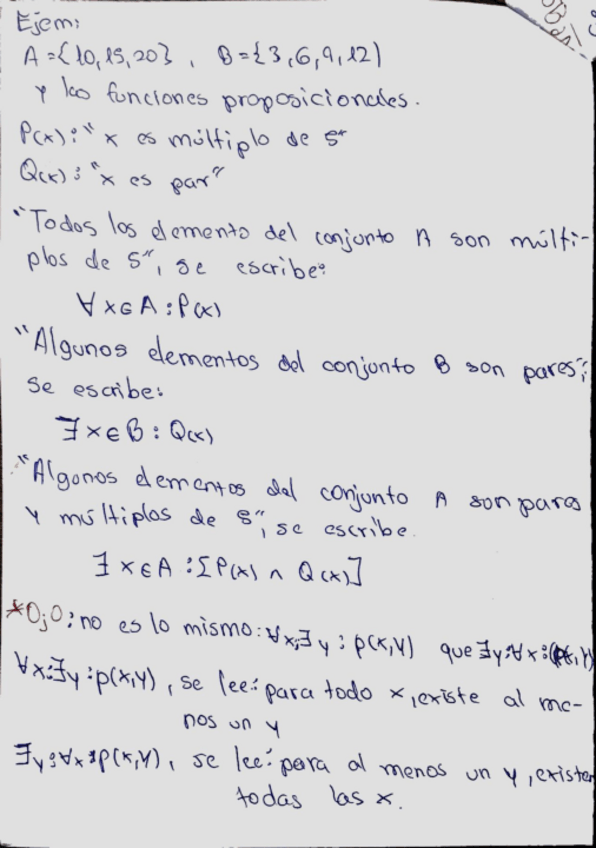 Ejem:
A = {10, 15, 20} , B = {3, 6, 9, 12}
y las funciones proposicionales.
P(x): "x es múltiplo de 5"
Q(x): "x es par"
"Todos los elemento del conjunto A son múlti-
plos de 5", se escribe:
∀ x ∈ A : P(x)
"Algunos elementos del conjunto B son pares",
se escribe:
∃ x ∈ B : Q(x)
"Algunos elementos del conjunto A son pares
y múltiplos de 5", se escribe.
∃ x ∈ A : [P(x) ∧ Q(x)]
*Ojo: no es lo mismo: ∀x; ∃y : p(x,y) que ∃y : ∀x : p(x,y)
∀x: ∃y : p(x,y), se lee: para todo x, existe al me-
nos un y
∃y : ∀x : p(x,y), se lee: para al menos un y, existen
todas las x.